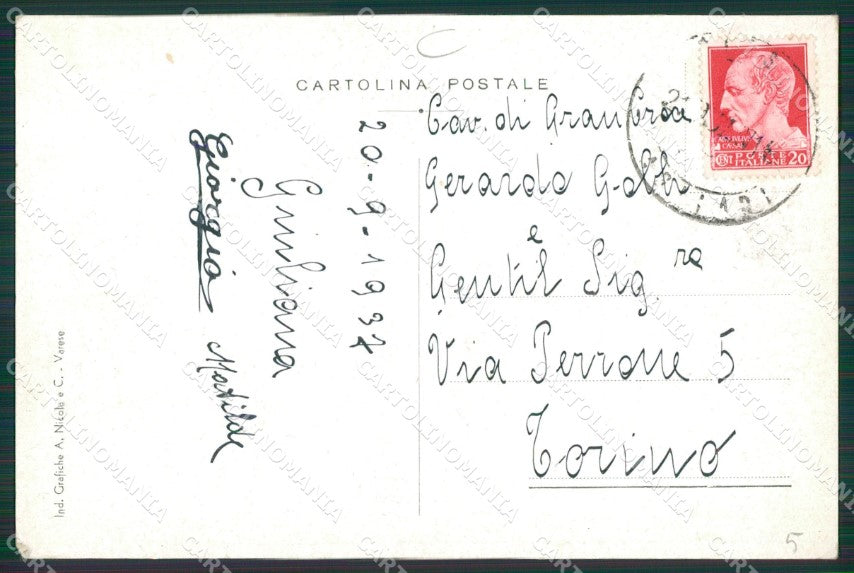 CARTOLINA POSTALE
20-9-1937
Giuliana
Giorgio Matilde
Ind. Grafiche A. Nicola e C. - Varese
Cav. di Gran Croce
Gerardo
e
Gentil Sig.ra
Via Perrone 5
Torino
GIULIO
CESARE
CENT POSTE 20
ITALIANE
5
CARTOLINOMANIA